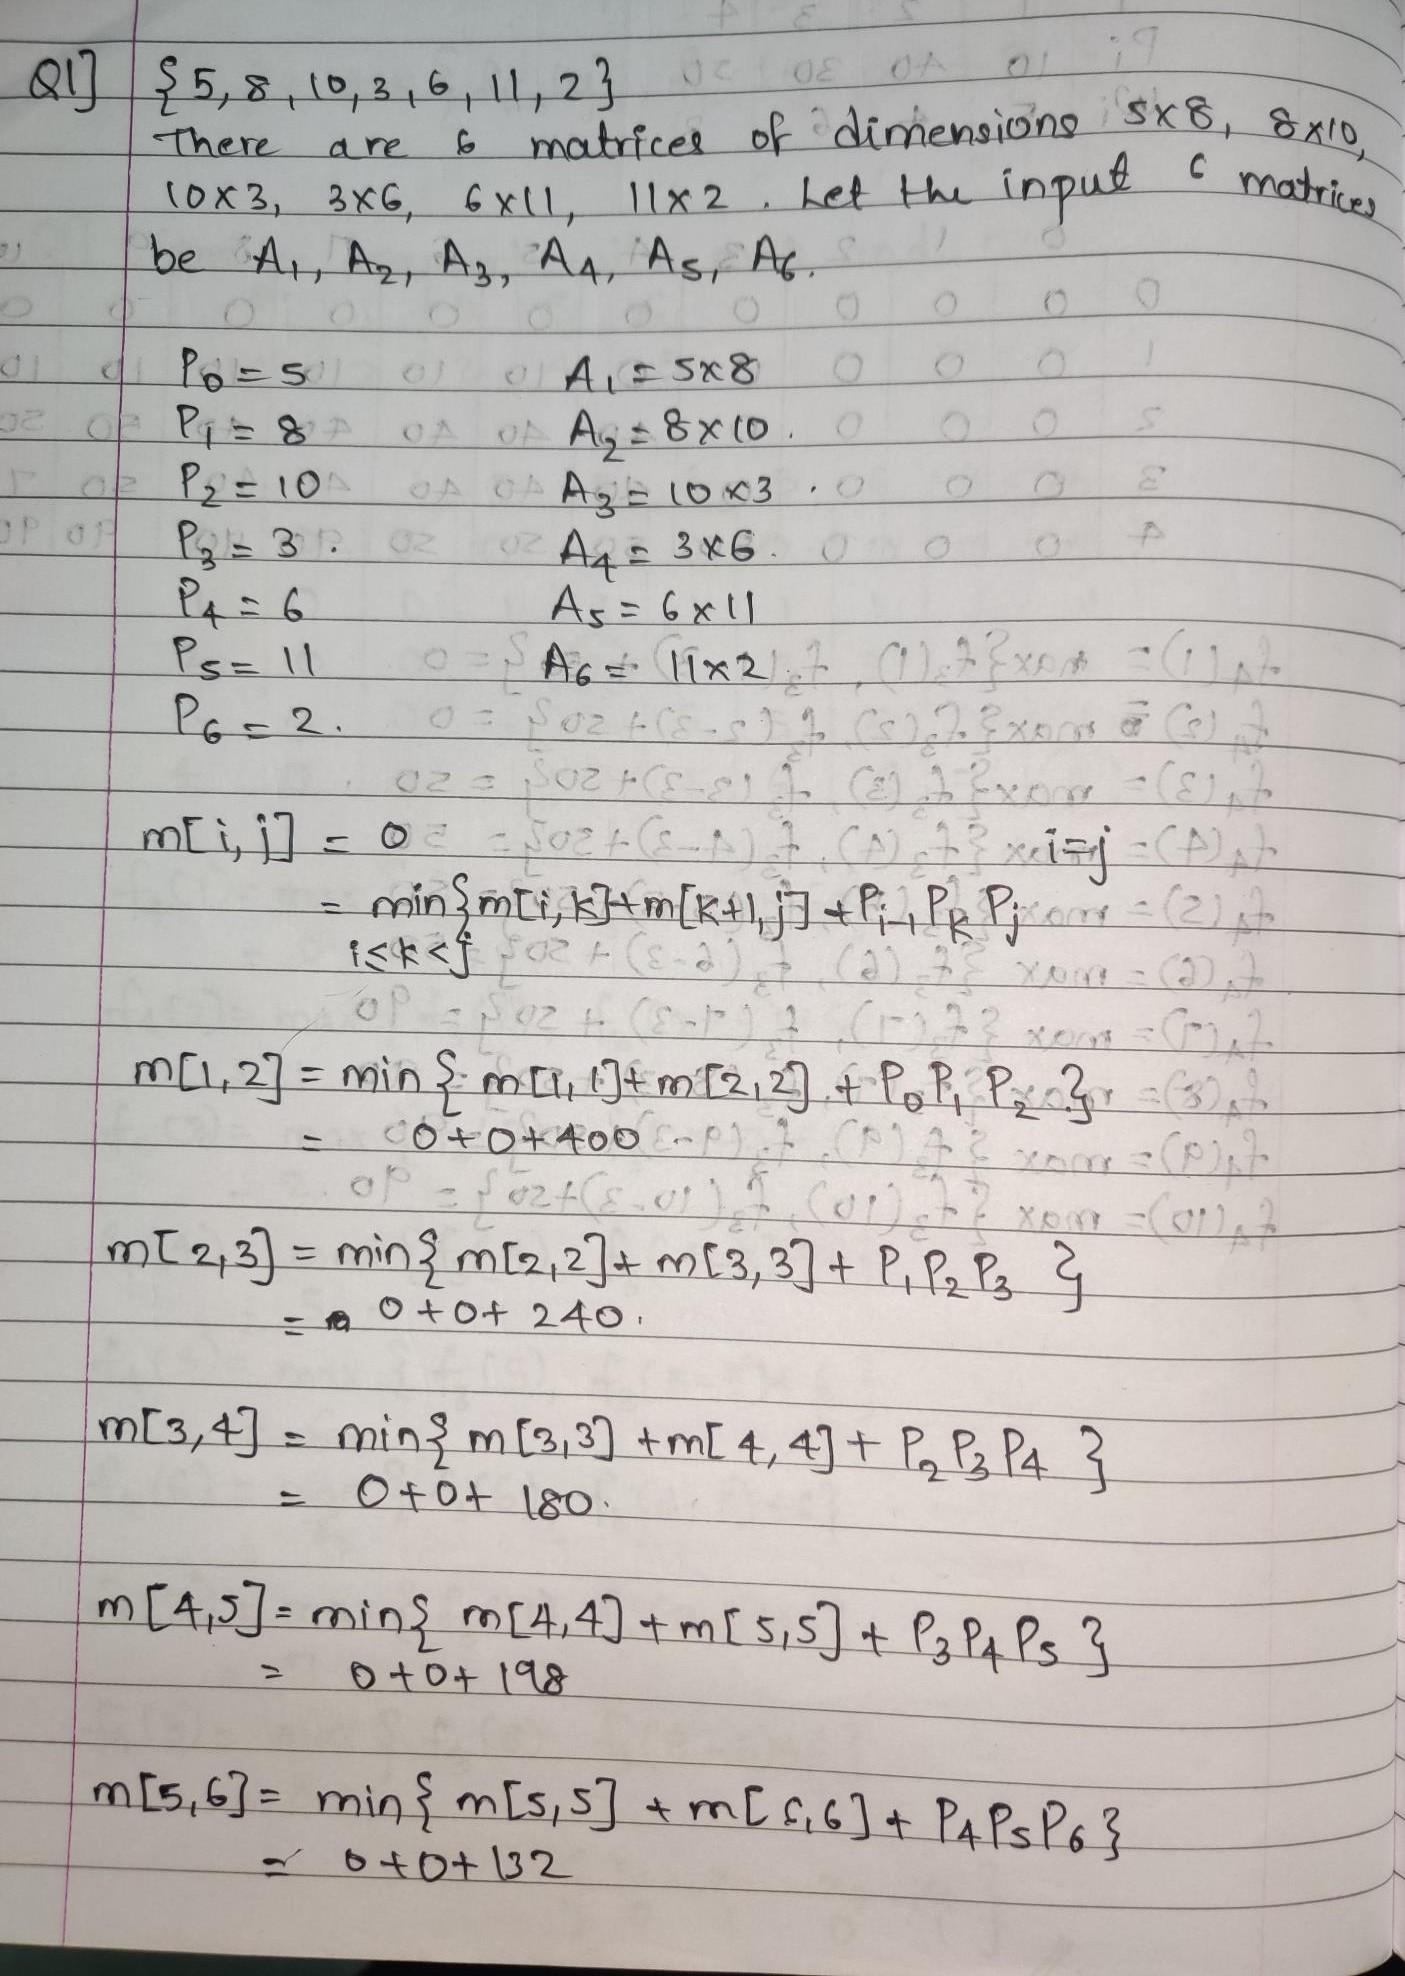 Q1] {5, 8, 10, 3, 6, 11, 2}
There are 6 matrices of dimensions 5x8, 8x10,
10x3, 3x6, 6x11, 11x2. Let the input 6 matrices
be A₁, A₂, A₃, A₄, A₅, A₆.
P₀ = 5 A₁ = 5x8
P₁ = 8 A₂ = 8x10.
P₂ = 10 A₃ = 10x3.
P₃ = 3. A₄ = 3x6.
P₄ = 6 A₅ = 6x11
P₅ = 11 A₆ = 11x2
P₆ = 2.
m[i,j] = 0 i=j
= min{m[i,k]+m[k+1,j]+Pᵢ₋₁ Pₖ Pⱼ
i≤k<j
m[1,2] = min{ m[1,1]+m[2,2] + P₀P₁P₂ }
= 0+0+400
m[2,3] = min{ m[2,2]+ m[3,3]+ P₁P₂P₃ }
= 0+0+ 240.
m[3,4] = min{ m[3,3] +m[4,4]+ P₂P₃P₄ }
= 0+0+ 180.
m[4,5] = min{ m[4,4] +m[5,5] + P₃P₄P₅ }
= 0+0+ 198
m[5,6] = min{ m[5,5] + m[6,6] + P₄P₅P₆}
= 0+0+132